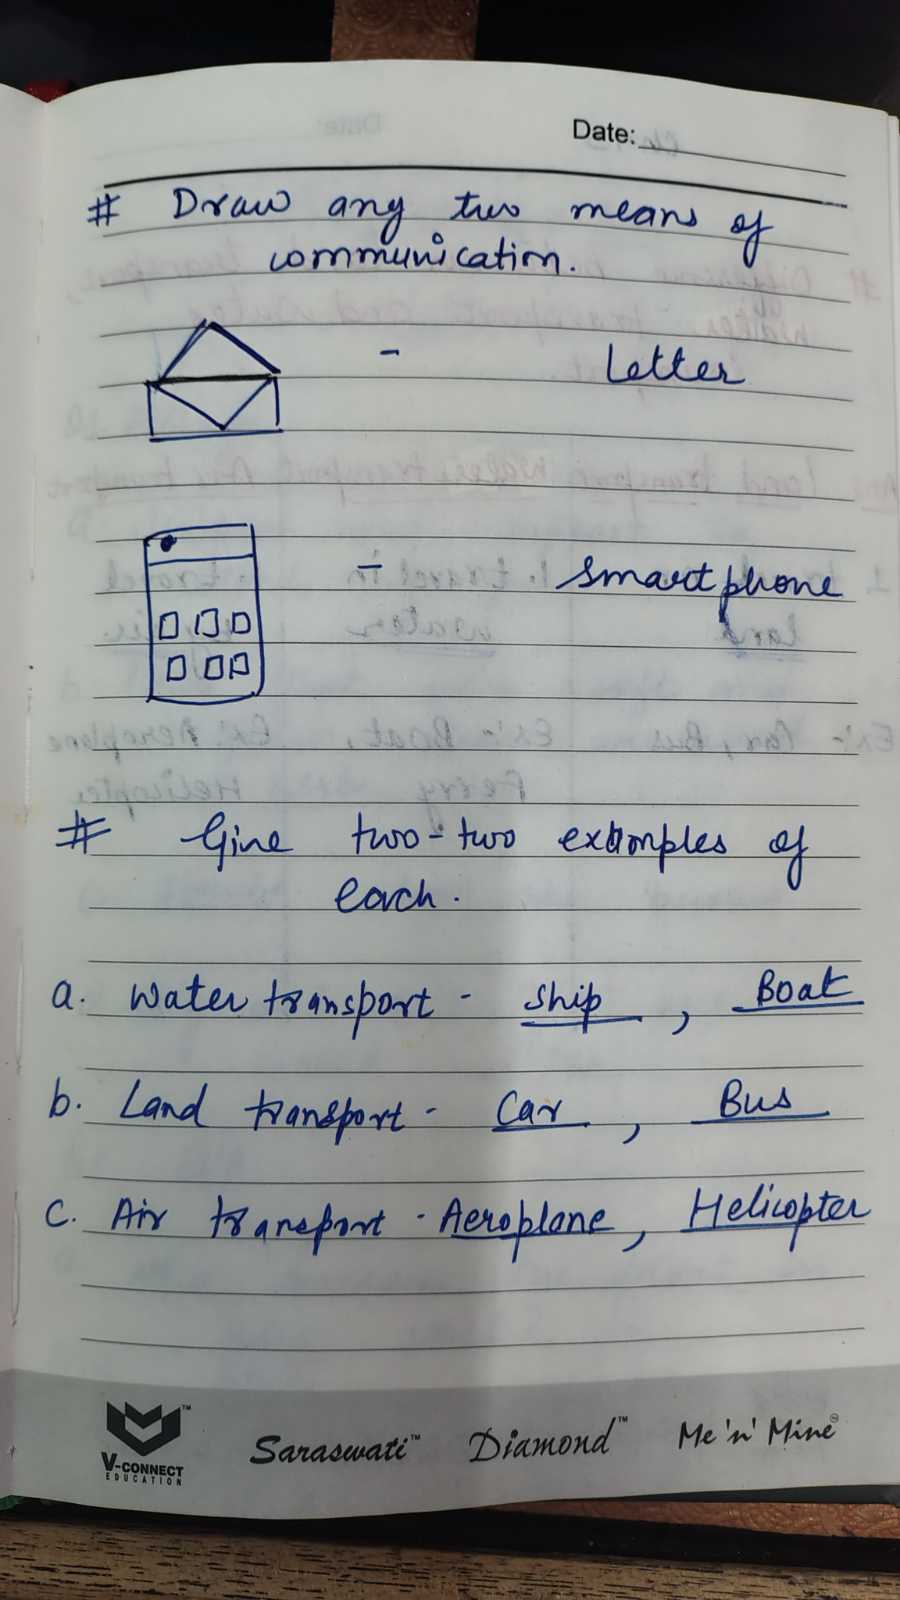 Date:
# Draw any two means of
communication.
- Letter
- Smartphone
# Give two-two examples of
each.
a. Water transport - Ship, Boat
b. Land transport - Car, Bus
c. Air transport - Aeroplane, Helicopter
V-CONNECT
EDUCATION
Saraswati™ Diamond™ Me 'n' Mine®